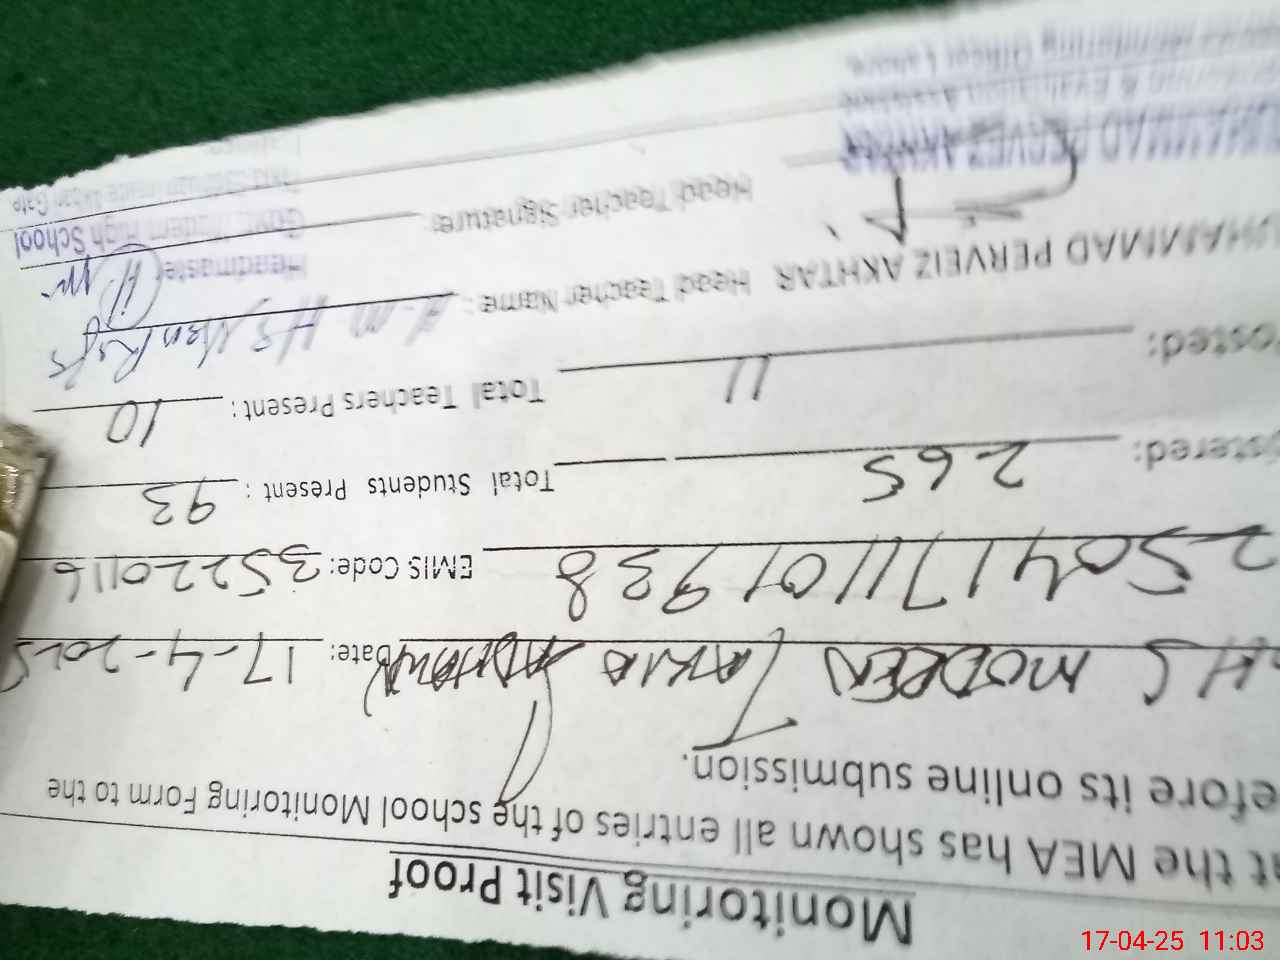 Monitoring Visit Proof
at the MEA has shown all entries of the school Monitoring Form to the
efore its online submission.
HS MODREN Date: 17-4-2025
25041711101938 EMIS Code: 35220116
istered: 265 Total Students Present : 93
osted: 11 Total Teachers Present : 10
UHAMMAD PERVEIZ AKHTAR Head Teacher Name:
Head Teacher Signature:
Headmaster
Govt. Modern High School
MUHAMMAD PERVEZ AKHTAR
17-04-25 11:03